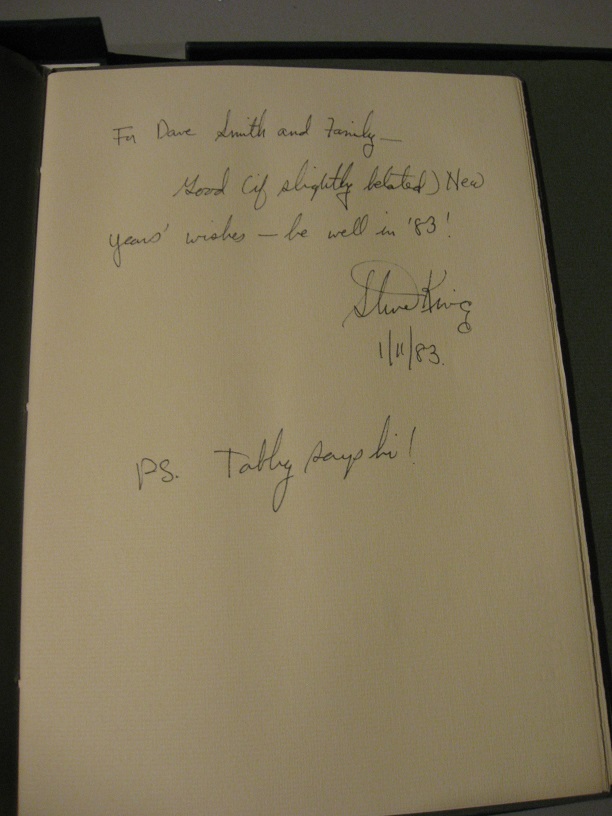 For Dave Smith and Family—
Good (if slightly belated) New
Years' wishes — be well in '83!
Steve King
1/11/83.
PS. Tabby says hi!